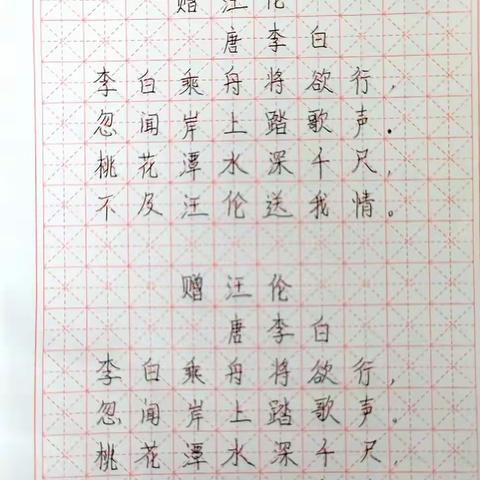 赠汪伦
唐李白
李白乘舟将欲行,
忽闻岸上踏歌声.
桃花潭水深千尺,
不及汪伦送我情。
赠汪伦
唐李白
李白乘舟将欲行,
忽闻岸上踏歌声。
桃花潭水深千尺,